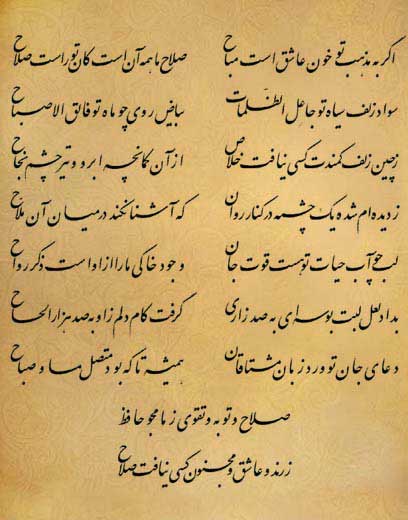 اگر به مذهب تو خون عاشق است مباح صلاح ما همه آن است کان توراست صلاح
سواد زلف سیاه تو جاعل الظلمات بیاض روی چو ماه تو فالق الاصباح
ز چین زلف کمندت کسی نیافت خلاص از آن کمانچه ابرو و تیر چشم نجاح
ز دیده‌ام شده یک چشمه در کنار روان که آشنا نکند در میان آن ملاح
لب چو آب حیات تو هست قوت جان وجود خاکی ما را از او است ذکر رواح
بداد لعل لبت بوسه‌ای به صد زاری گرفت کام دلم ز او به صد هزار الحاح
دعای جان تو ورد زبان مشتاقان همیشه تا که بود متصل مسا و صباح
صلاح و توبه و تقوی ز ما مجو حافظ
ز رند و عاشق و مجنون کسی نیافت صلاح